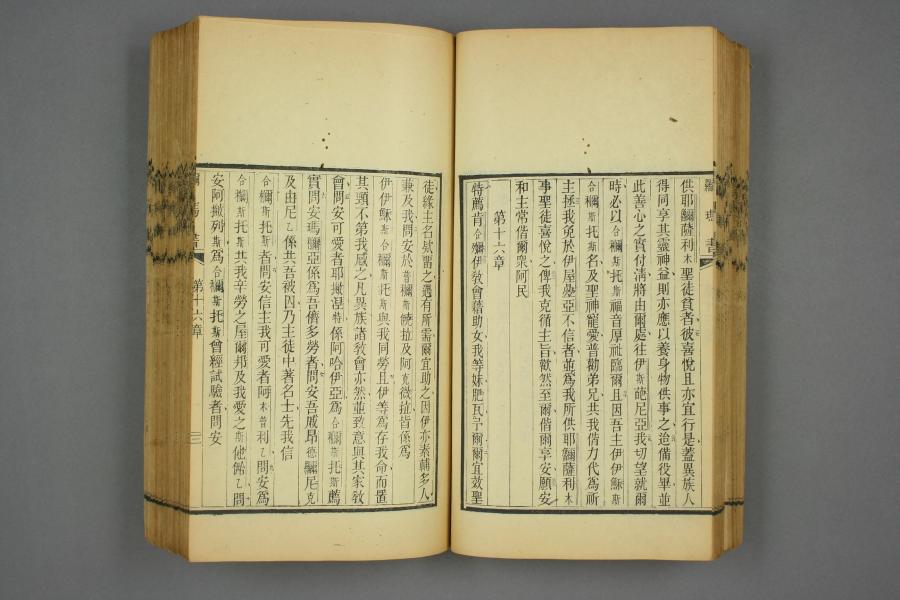 供耶𬴐薩利木聖徒貧者彼喜悅且亦宜行是蓋異族人
得同享其靈神益則亦應以養身物供事之迨備役畢並
此善心之實付淸將由爾處往伊斯葩尼亞我切望就爾
時必以合穪斯托斯福音厚祉臨爾且因吾主伊伊穌斯
合穪斯托斯名及聖神寵愛普勸弟兄共我偕力代為祈
主拯我免於伊屋疊亞不信者並為我所供耶𬴐薩利木
事聖徒喜悅之俾我克循主旨歡然至爾偕爾享安願安
和主常偕爾衆阿民
第十六章
特薦肯合穪伊敎會藉助女我等妹肥瓦予爾爾宜效聖
徒緣主名欵畱之遇有所需爾宜助之因伊亦素輔多人
兼及我問安於普穪斯饒拉及阿克微拉皆係為
伊伊穌斯合穪斯托斯與我同勞且伊等為存我命而置
其頸不第我感之凡異族諸敎會亦然並致意與其家敎
會問安可愛者耶撇涅特係阿哈伊亞為合穪斯托斯薦
實問安瑪穪亞係為吾儕多勞者問安吾戚昂德𬴐尼克
及由尼乙係共吾被囚乃主徒中著名士先我信
合穪斯托斯者問安信主我可愛者阿木普利乙問安為
合穪斯托斯共我辛勞之屋爾邦及我愛之斯他䱛乙問
安阿撇列斯為合穪斯托斯曾經試驗者問安
書
第十六章
三